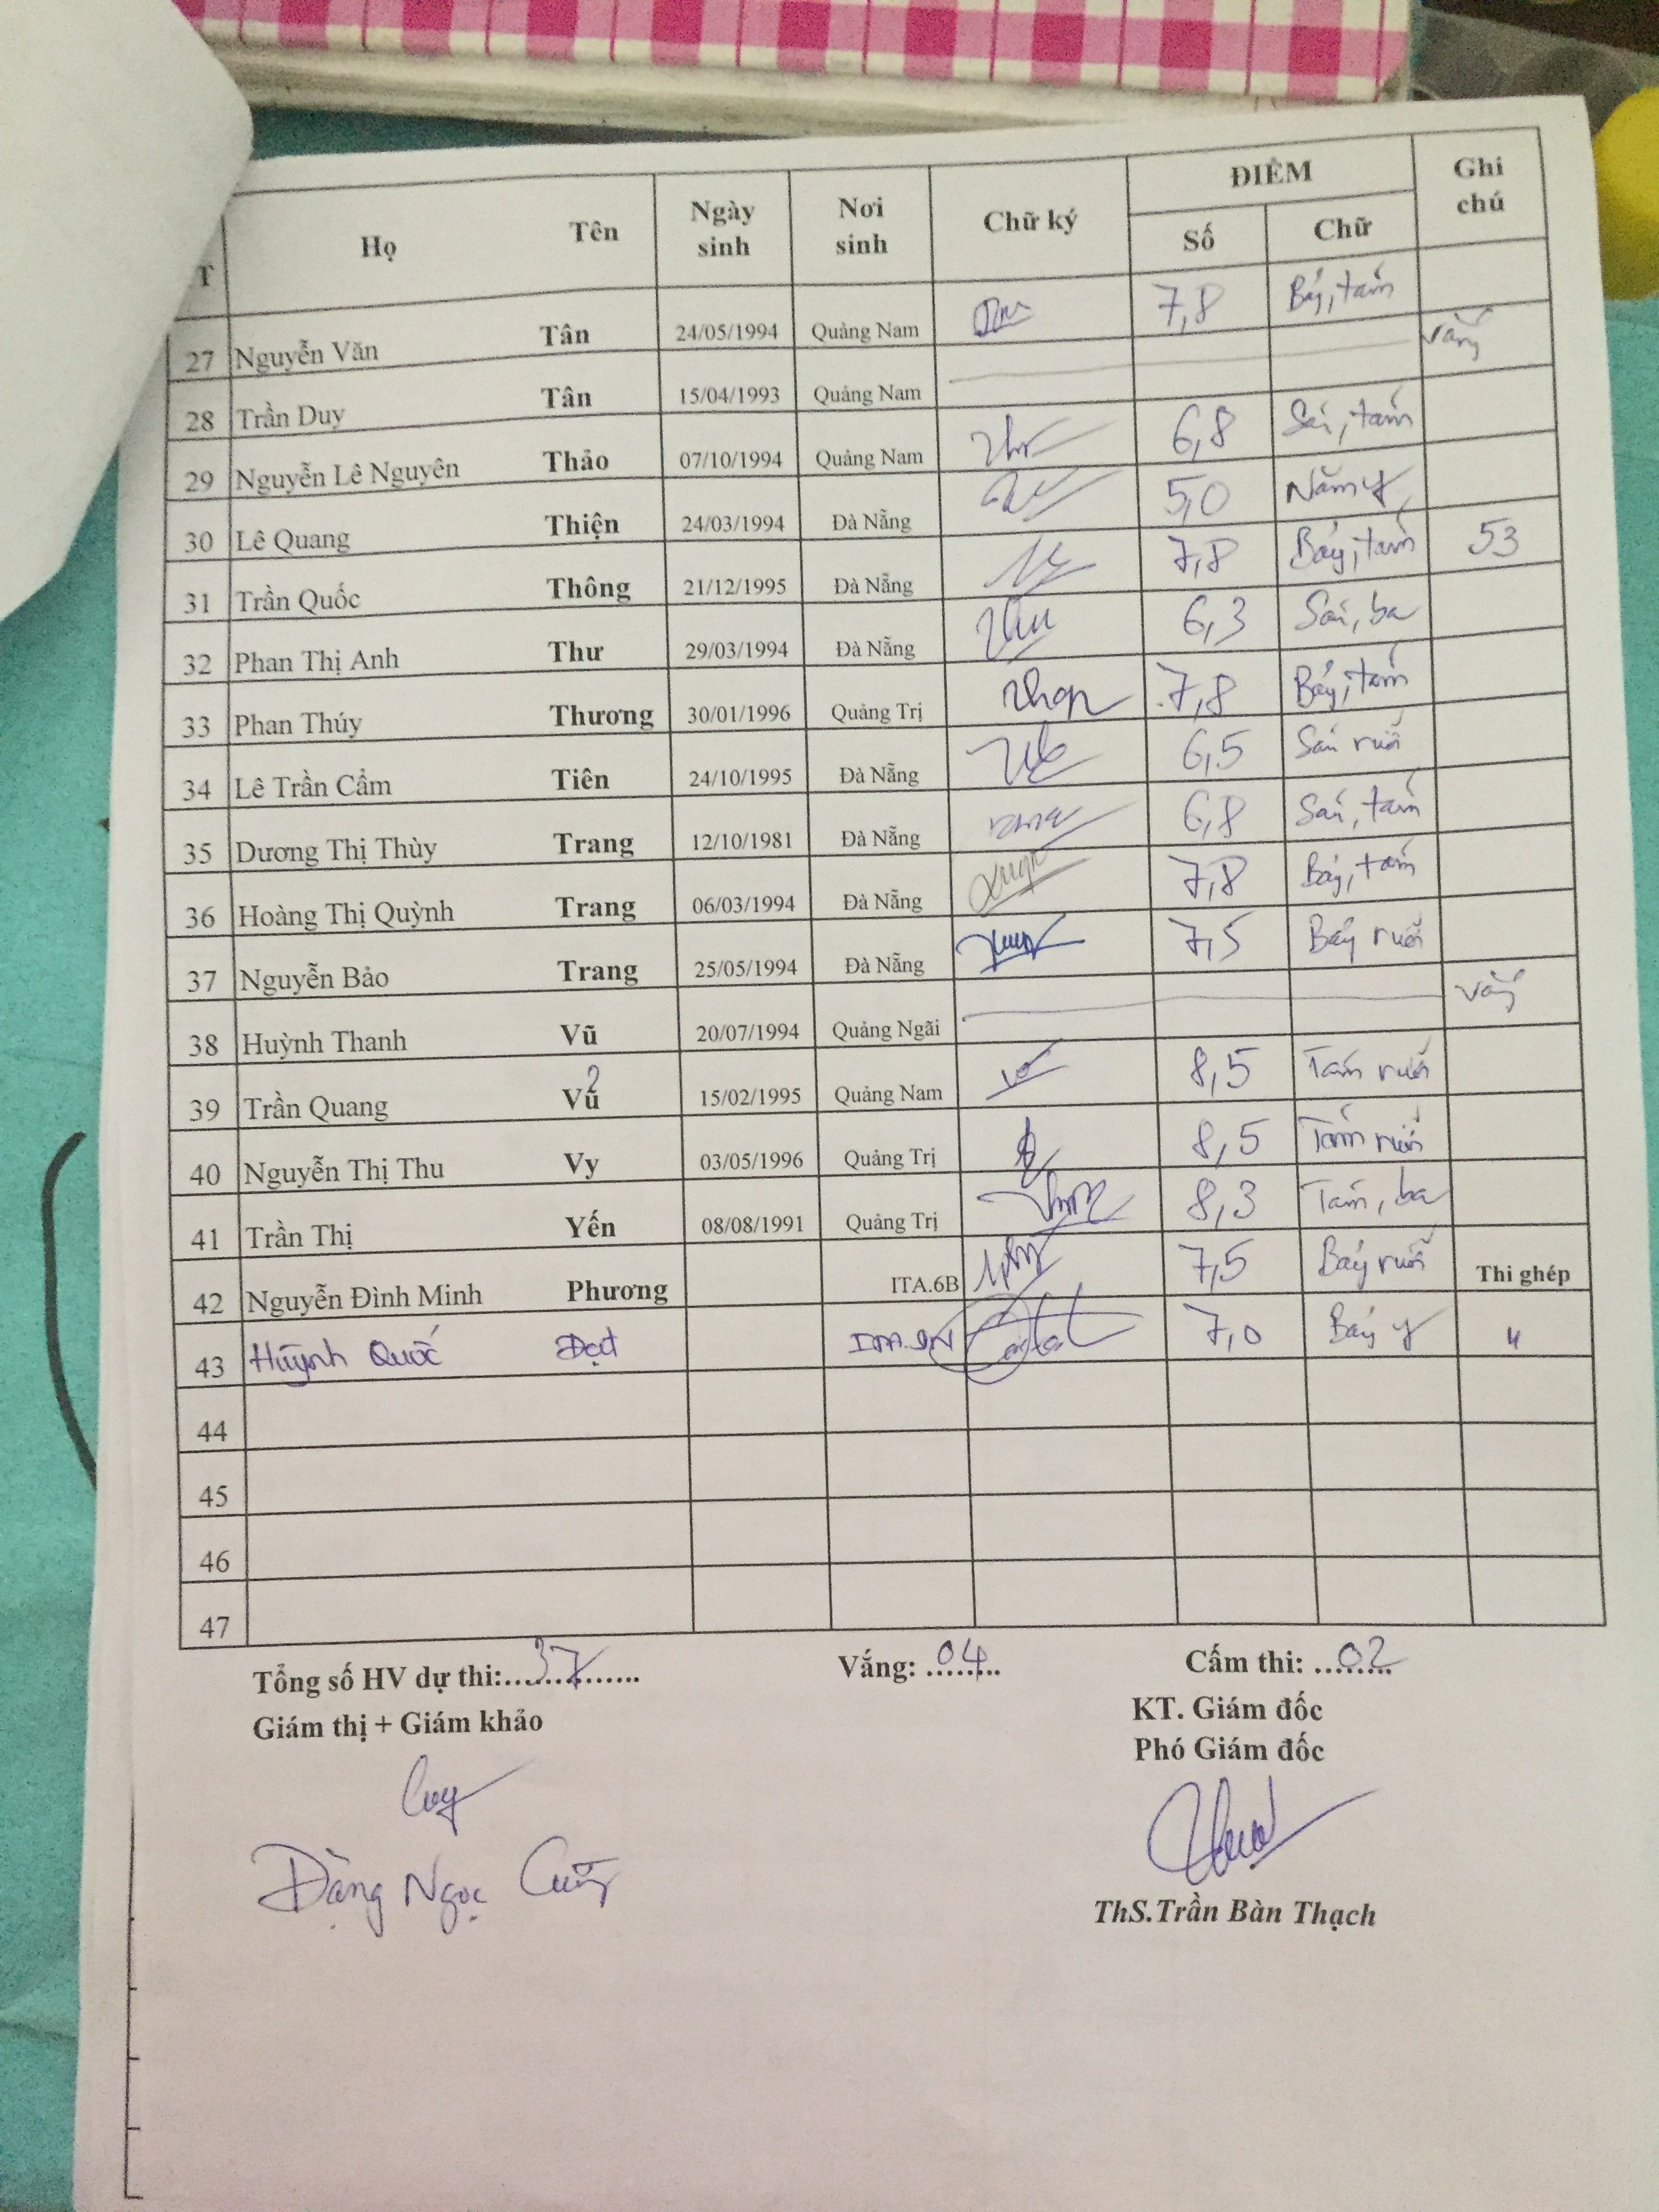 T Họ Tên Ngày sinh Nơi sinh Chữ ký ĐIỂM Số Chữ Ghi chú
27 Nguyễn Văn Tân 24/05/1994 Quảng Nam 7,8 Bảy, tám
28 Trần Duy Tân 15/04/1993 Quảng Nam Vắng
29 Nguyễn Lê Nguyên Thảo 07/10/1994 Quảng Nam 6,8 Sáu, tám
30 Lê Quang Thiện 24/03/1994 Đà Nẵng 5,0 Năm y
31 Trần Quốc Thông 21/12/1995 Đà Nẵng 7,8 Bảy, tám 53
32 Phan Thị Anh Thư 29/03/1994 Đà Nẵng 6,3 Sáu, ba
33 Phan Thúy Thương 30/01/1996 Quảng Trị 7,8 Bảy, tám
34 Lê Trần Cẩm Tiên 24/10/1995 Đà Nẵng 6,5 Sáu rưỡi
35 Dương Thị Thùy Trang 12/10/1981 Đà Nẵng 6,8 Sáu, tám
36 Hoàng Thị Quỳnh Trang 06/03/1994 Đà Nẵng 7,8 Bảy, tám
37 Nguyễn Bảo Trang 25/05/1994 Đà Nẵng 7,5 Bảy rưỡi
38 Huỳnh Thanh Vũ 20/07/1994 Quảng Ngãi Vắng
39 Trần Quang Vũ 15/02/1995 Quảng Nam 8,5 Tám rưỡi
40 Nguyễn Thị Thu Vy 03/05/1996 Quảng Trị 8,5 Tám rưỡi
41 Trần Thị Yến 08/08/1991 Quảng Trị 8,3 Tám, ba
42 Nguyễn Đình Minh Phương ITA.6B 7,5 Bảy rưỡi Thi ghép
43 Huỳnh Quốc Đạt 7,0 Bảy y "
44
45
46
47
Tổng số HV dự thi:....37...... Vắng: ...04... Cấm thi: ...02...
Giám thị + Giám khảo KT. Giám đốc
Phó Giám đốc
Đặng Ngọc Cường
ThS.Trần Bàn Thạch